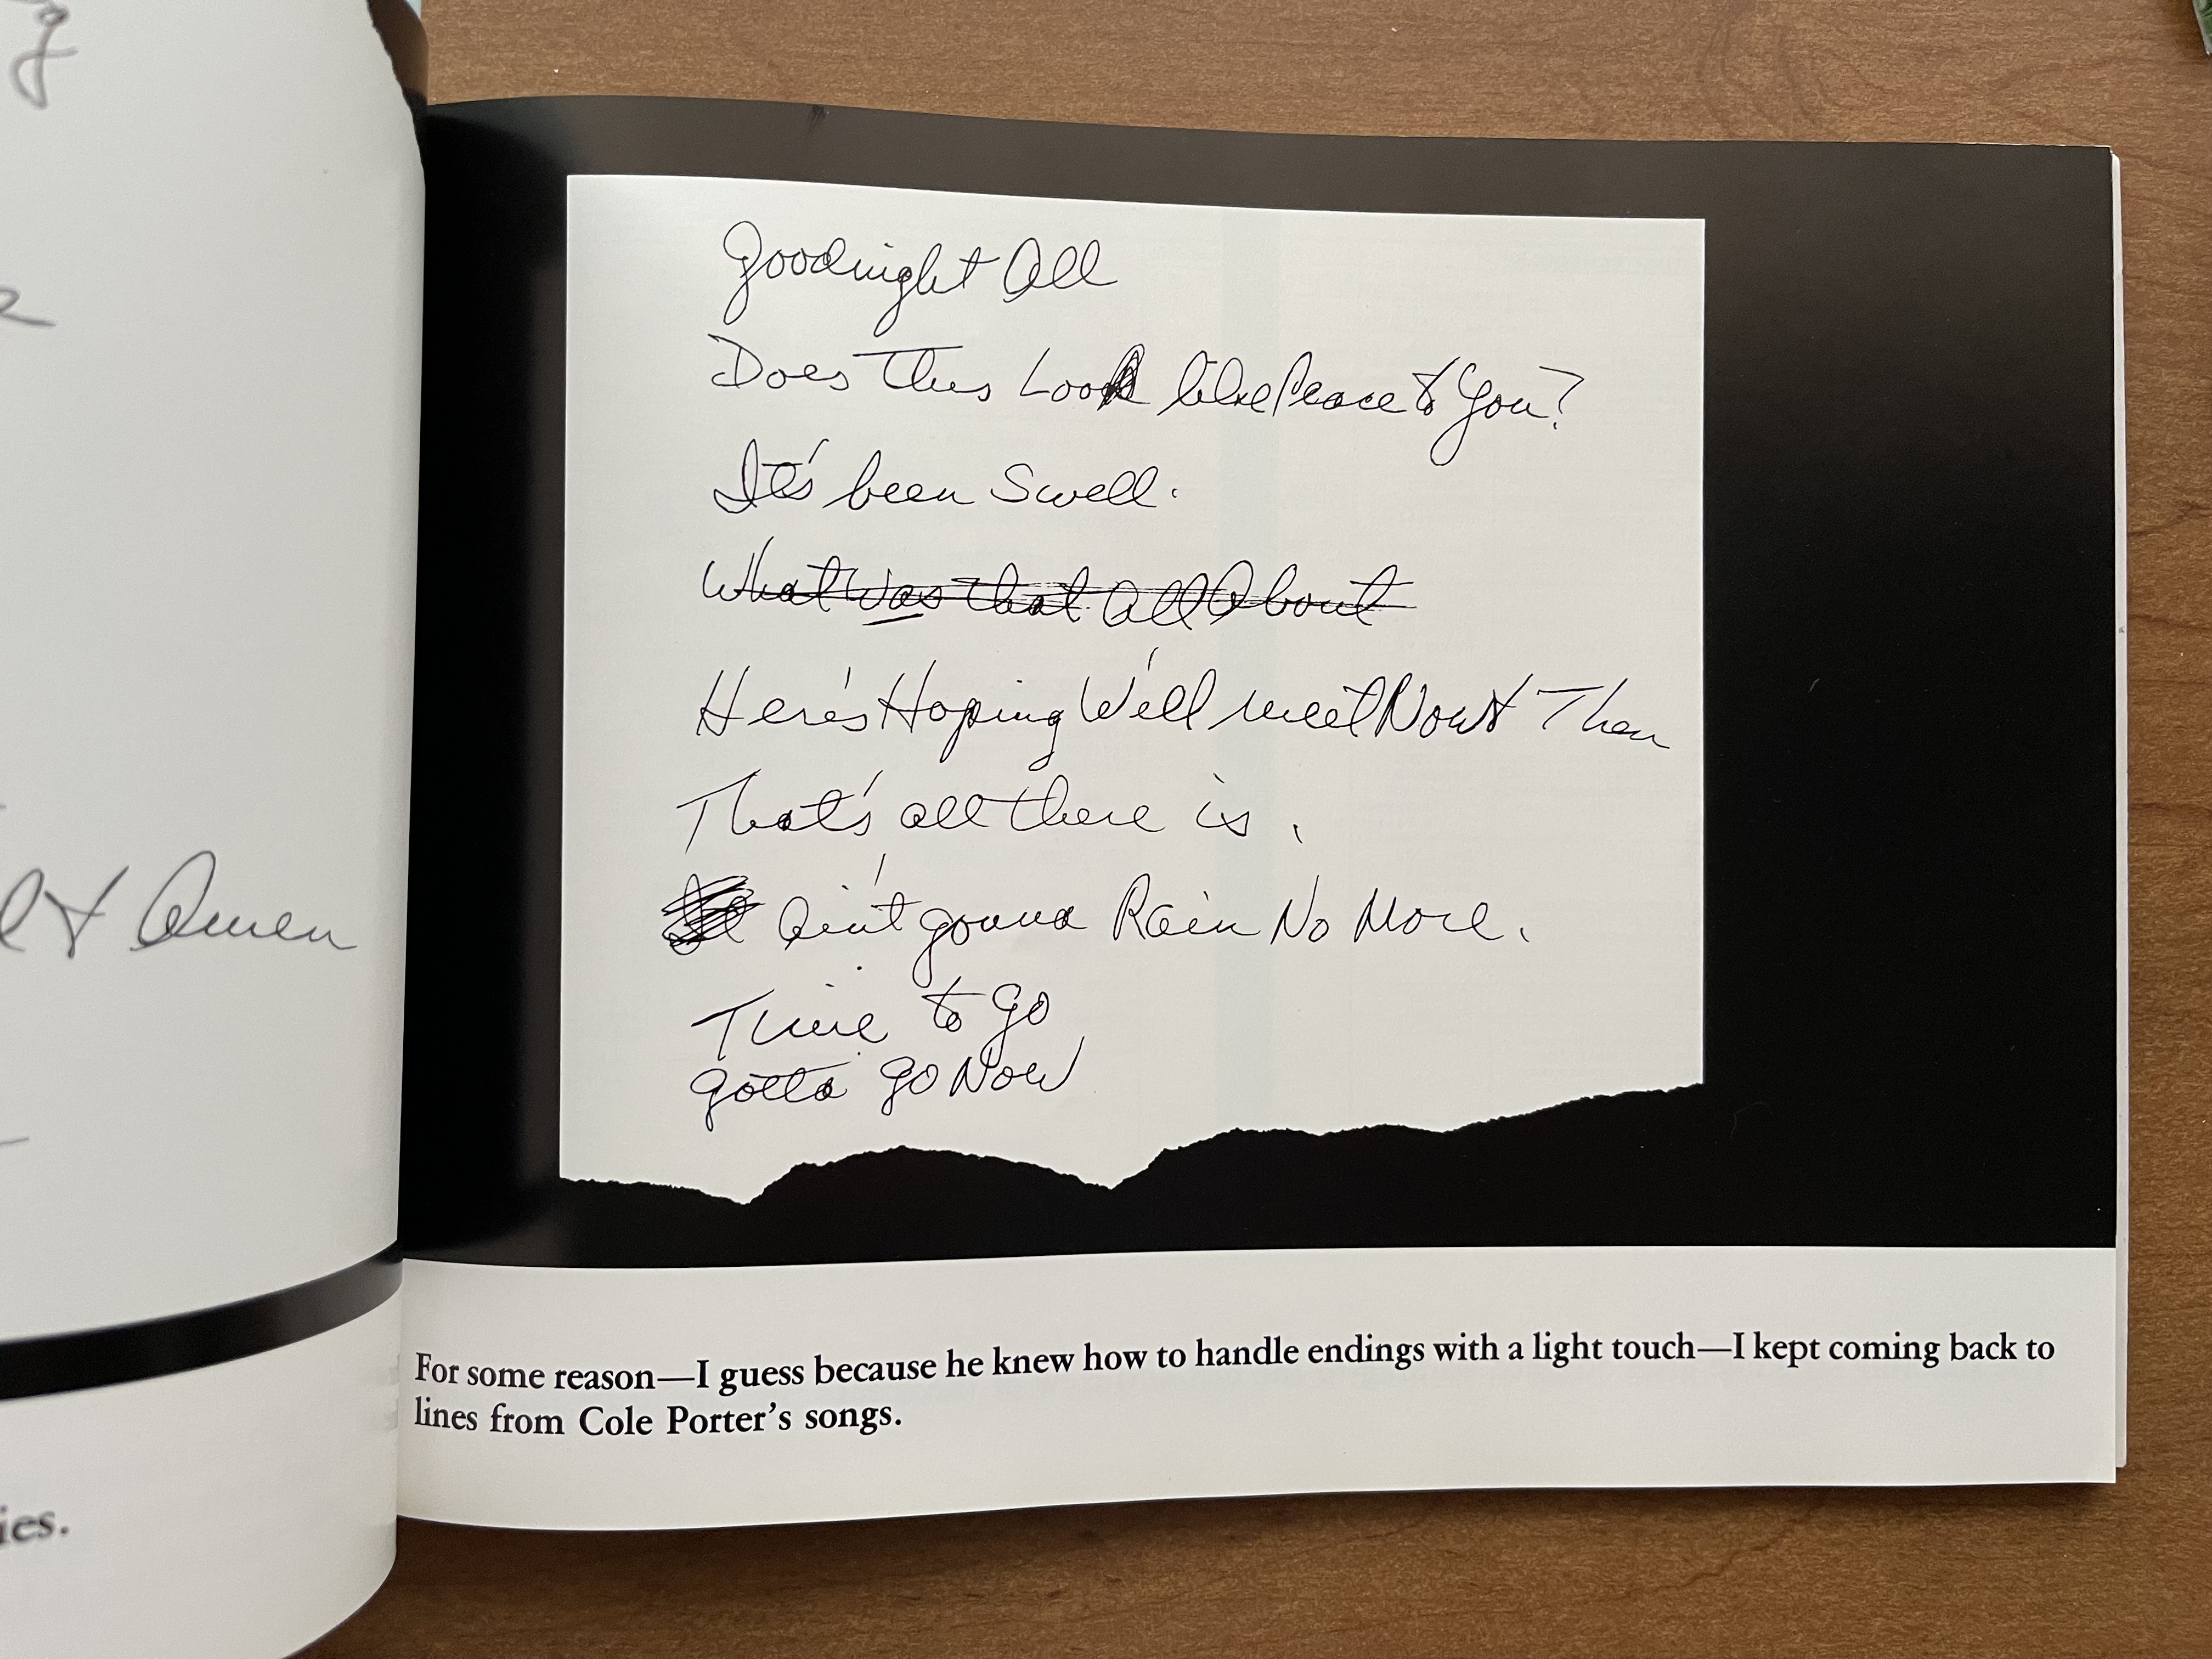 & Queen
ies.
Goodnight All
Does This Look like Peace to You?
It's been Swell.
What was that all About
Here's Hoping We'll meet Now & Then
That's all there is.
Ain't gonna Rain No More.
Time to go
gotta go Now
For some reason—I guess because he knew how to handle endings with a light touch—I kept coming back to
lines from Cole Porter's songs.